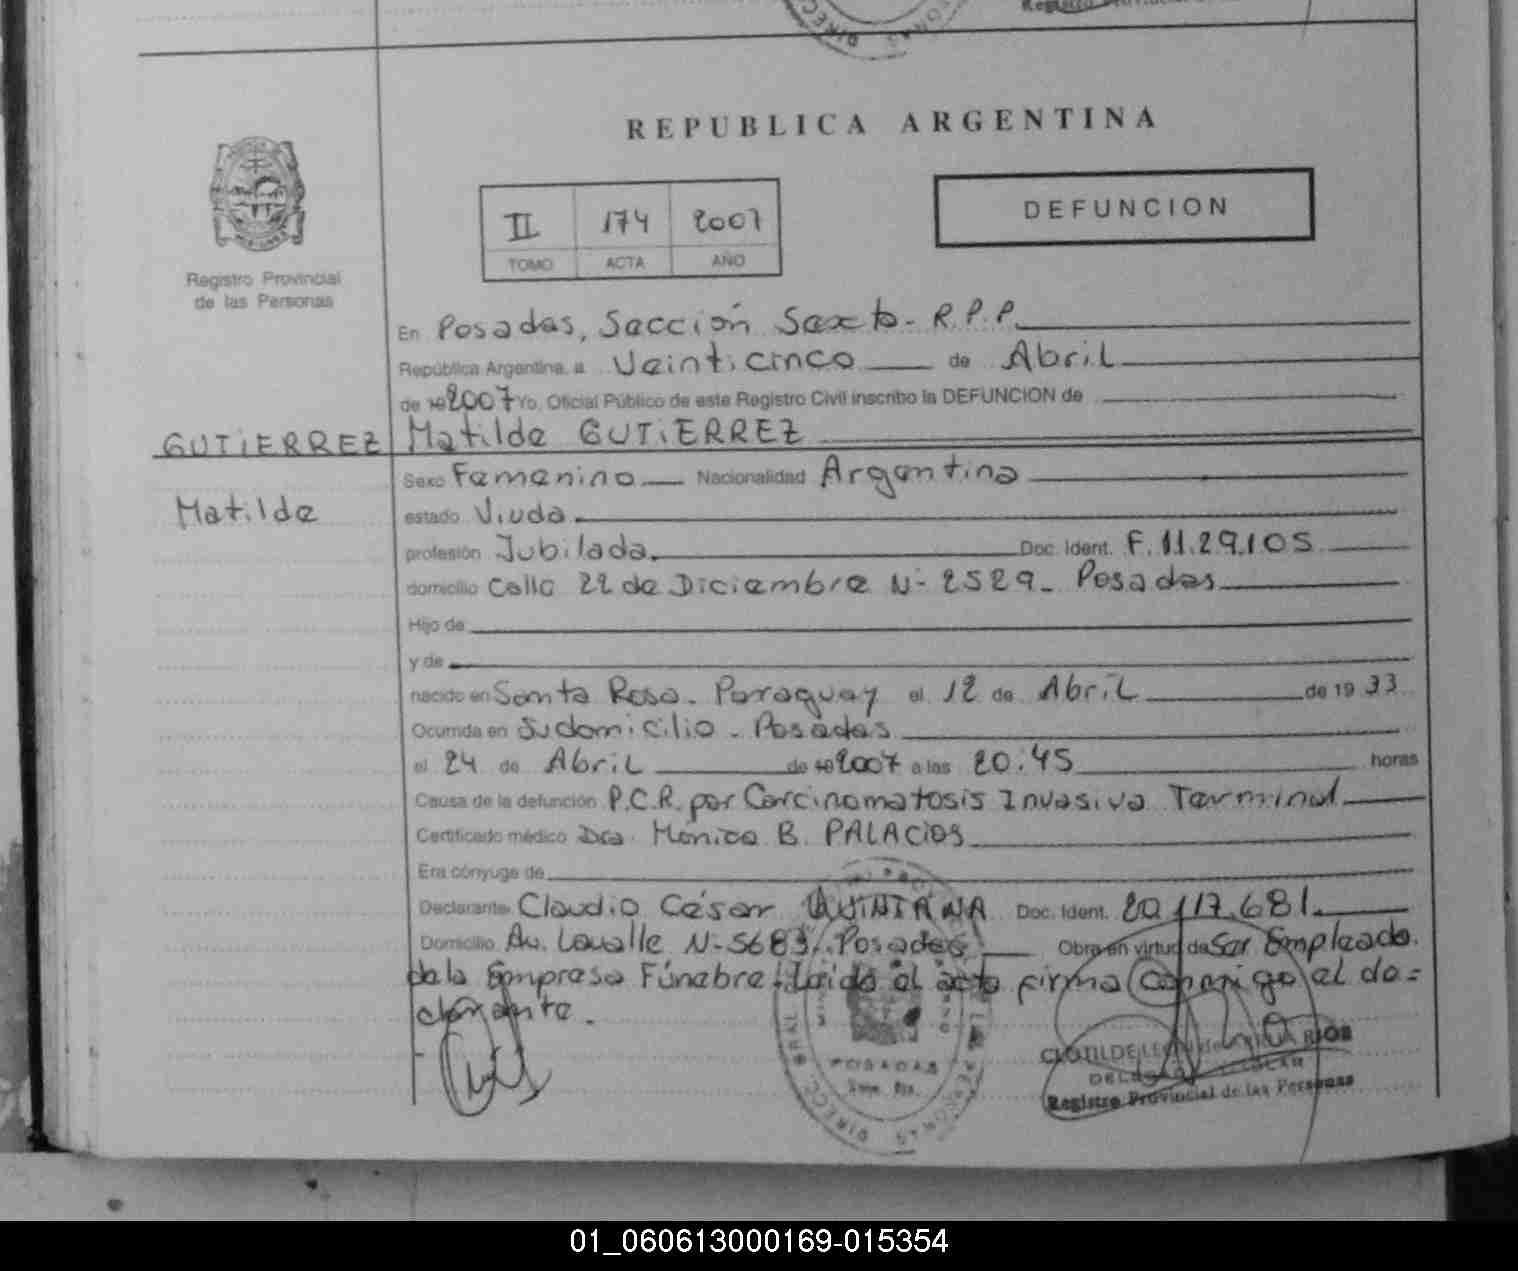 REPUBLICA ARGENTINA
II 174 2007
TOMO ACTA AÑO
DEFUNCION
Registro Provincial
de las Personas
En Posadas, Sección Sexta- R.P.P.
República Argentina, a Veinticinco de Abril
de 19 2007 Yo, Oficial Público de este Registro Civil inscribo la DEFUNCION de
GUTIERREZ Matilde GUTIERREZ
Sexo Femenino Nacionalidad Argentina
Matilde estado Viuda
profesión Jubilada. Doc. Ident. F. 11.29.105
domicilio Calle 22 de Diciembre N- 2529- Posadas
Hijo de
y de
nacido en Santa Rosa- Paraguay el 12 de Abril de 19 33
Ocurrida en Su domicilio - Posadas
el 24 de Abril de 19 2007 a las 20:45 horas
Causa de la defunción P.C.R. por Carcinomatosis Invasiva Terminal
Certificado médico Dra. Mónica B. PALACIOS
Era cónyuge de
Declarante Claudio César QUINTANA Doc. Ident. 20.117.681
Domicilio Av. Lavalle N-5683. Posadas Obra en virtud de Ser Empleado
de la Empresa Fúnebre. Leída el acta firma conmigo el de=
clarante.
POSADAS
CLOTILDE RIOS
Registro Provincial de las Personas
01_060613000169-015354